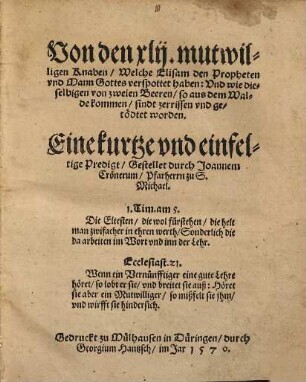 Von den xlij. mutwil-
ligen Knaben / Welche Elisam den Propheten
vnd Mann Gottes verspottet haben: Vnd wie die-
selbigen von zweien Beeren / so aus dem Wal-
de kommen / sindt zerrissen vnd ge-
tödtet worden.
Eine kurtze vnd einfel-
tige Predigt / Gestellet durch Joannem
Crönerum / Pfarherrn zu S.
Michael.
1. Tim. am 5.
Die Eltesten / die wol fürstehen / die helt
man zwifacher in ehren werth / Sonderlich die
da arbeiten im Wort vnd inn der Lehr.
Ecclesiast. 21.
Wenn ein Vernünfftiger eine gute Lehre
höret / so lobt er sie / vnd breitet sie auß: Höret
sie aber ein Mutwilliger / so mißfelt sie jhm /
vnd wirfft sie hindersich.
Gedruckt zu Mülhausen in Düringen / durch
Georgium Hantzsch / im Jar 1570.